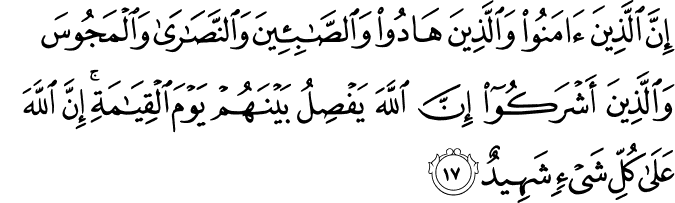 إِنَّ ٱلَّذِينَ ءَامَنُوا۟ وَٱلَّذِينَ هَادُوا۟ وَٱلصَّـٰبِـِٔينَ وَٱلنَّصَـٰرَىٰ وَٱلْمَجُوسَ
وَٱلَّذِينَ أَشْرَكُوٓا۟ إِنَّ ٱللَّهَ يَفْصِلُ بَيْنَهُمْ يَوْمَ ٱلْقِيَـٰمَةِ ۚ إِنَّ ٱللَّهَ
عَلَىٰ كُلِّ شَىْءٍ شَهِيدٌ ١٧